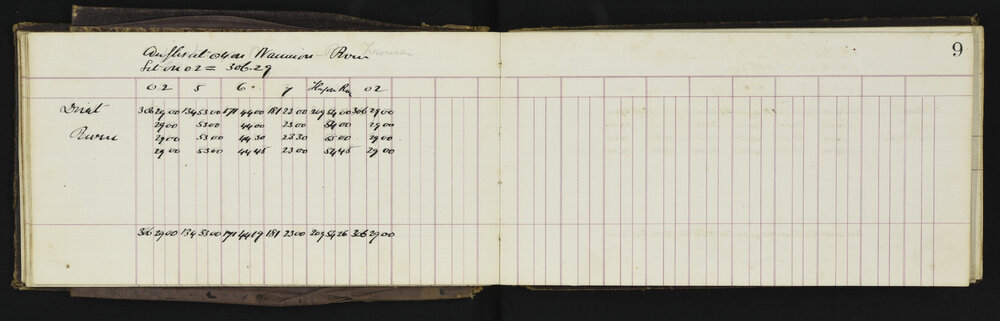 Angles at on Wannon River Traverse
Set on 02 = 306.29
02 5 6 7 02
Direct 306 29 00 134 53 00 171 44 00 181 23 00 209 54 00 306 29 00
29 00 53 00 44 00 23 00 54 00 29 00
29 00 53 00 44 30 23 30 55 00 29 00
29 00 53 00 44 45 23 00 54 45 29 00
306 29 00 134 53 00 171 44 19 181 23 00 209 54 26 306 29 00
9